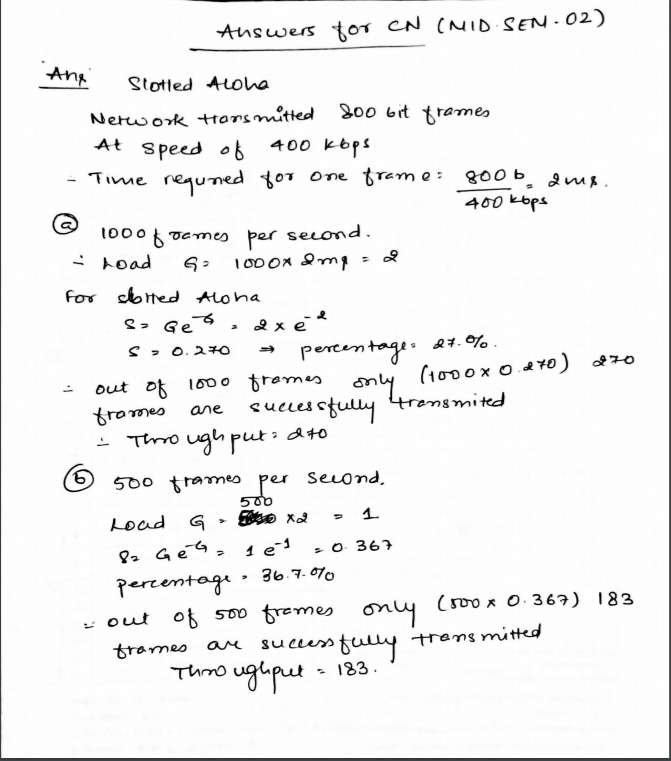 Answers for CN (MID SEM - 02)
Ans Slotted Aloha
Network transmitted 800 bit frames
At speed of 400 kbps
- Time required for one frame: 800 b / 400 kbps = 2ms.
(a) 1000 frames per second.
∴ Load G = 1000 x 2ms = 2
For slotted Aloha
S = Ge^-G = 2 x e^-2
S = 0.270 ⇒ percentage: 27.0%.
∴ out of 1000 frames only (1000 x 0.270) 270
frames are successfully transmited
∴ Throughput: 270
(b) 500 frames per second.
Load G = 500 x2 = 1
S = Ge^-G = 1 e^-1 = 0.367
percentage = 36.7.%
∴ out of 500 frames only (500 x 0.367) 183
frames are successfully transmitted
Throughput = 183.